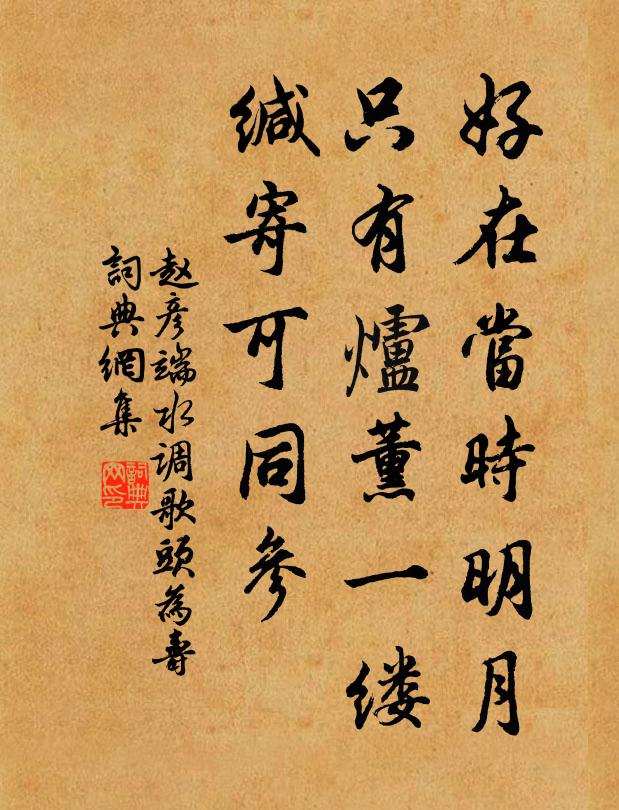 好在當時明月
只有爐薰一缕
缄寄可同參
赵彦端水调歌頭為壽
詞典網集
詞典網印